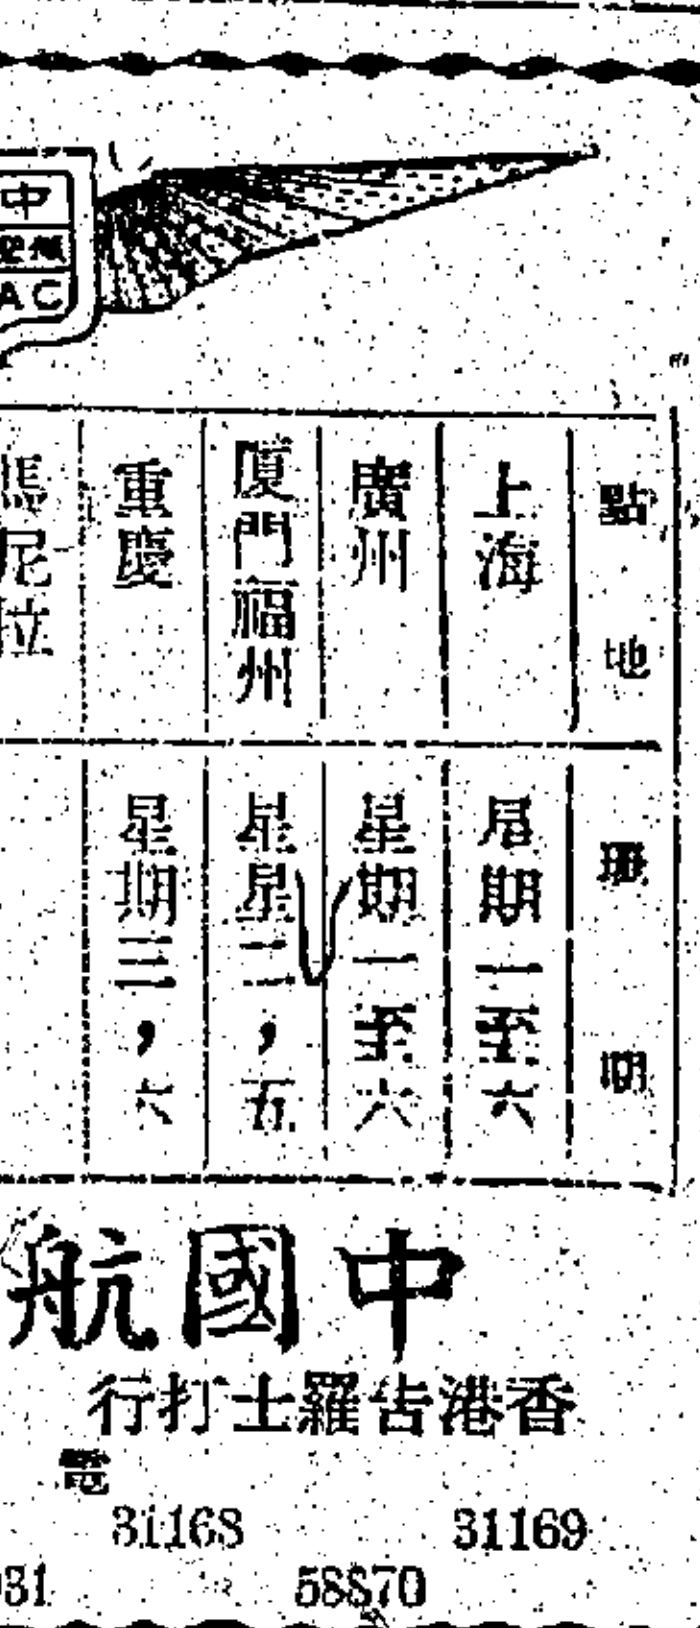 中
航空
AC
點地
上海
廣州
厦門福州
重慶
馬尼拉
期
星期一至六
星期一至六
星星二，五
星期三，六
中國航
香港告羅士打行
電
31169
31168
58870